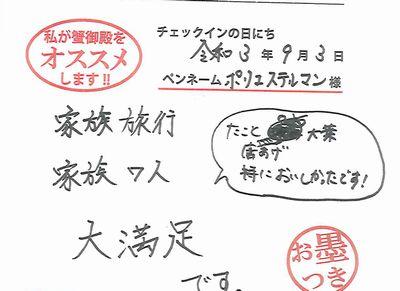 私が蟹御殿を
オススメ
します!!
チェックインの日にち
令和3年9月3日
ペンネーム ポリエステルマン 様
家族旅行
家族7人
たこと 大葉
唐あげ
特においしかったです!
大満足
です。
お墨
つき